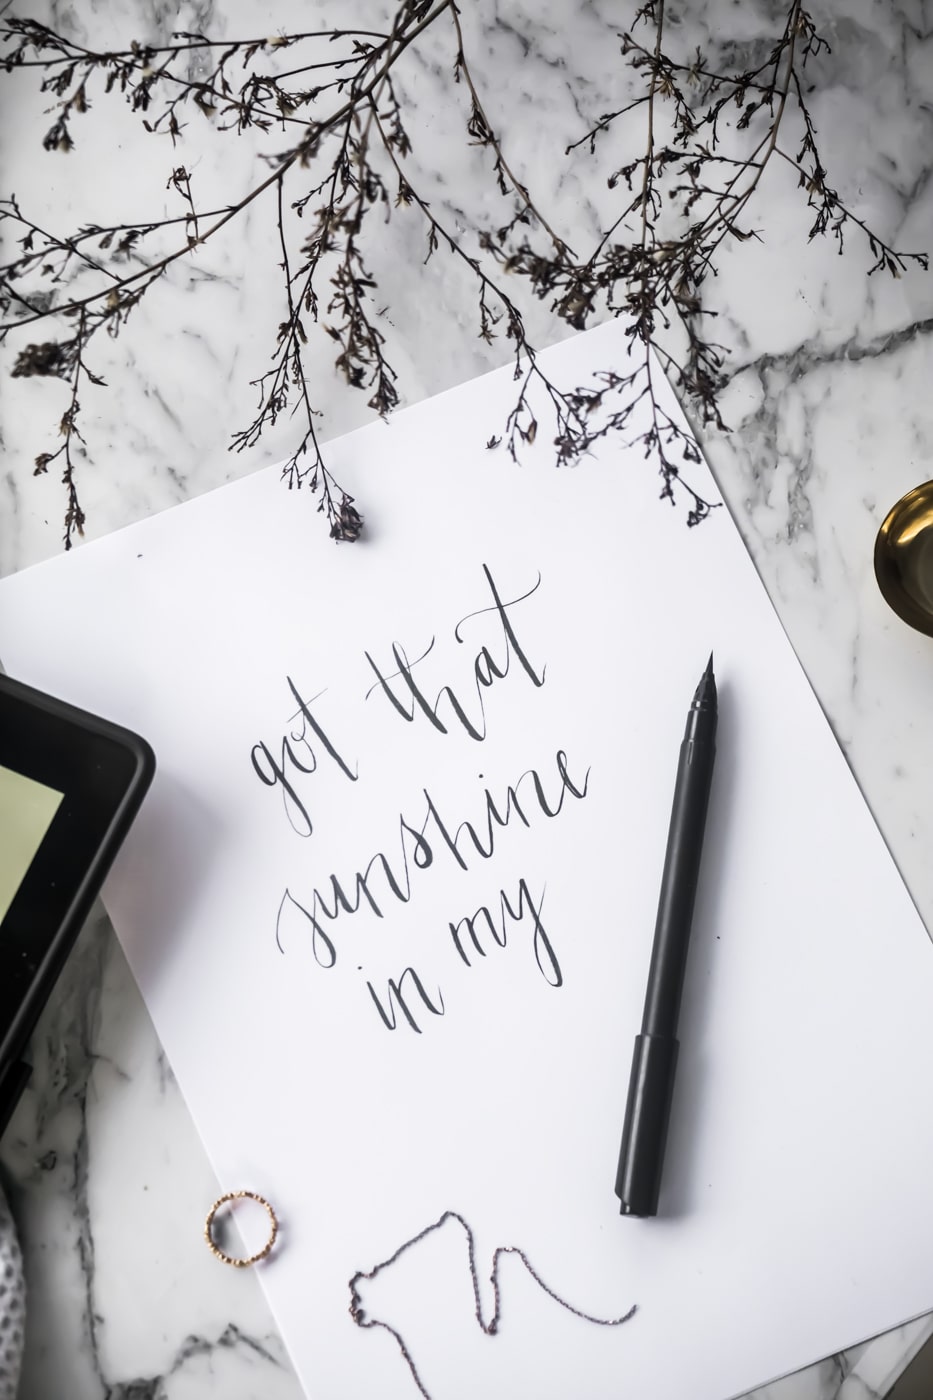 got that
sunshine
in my